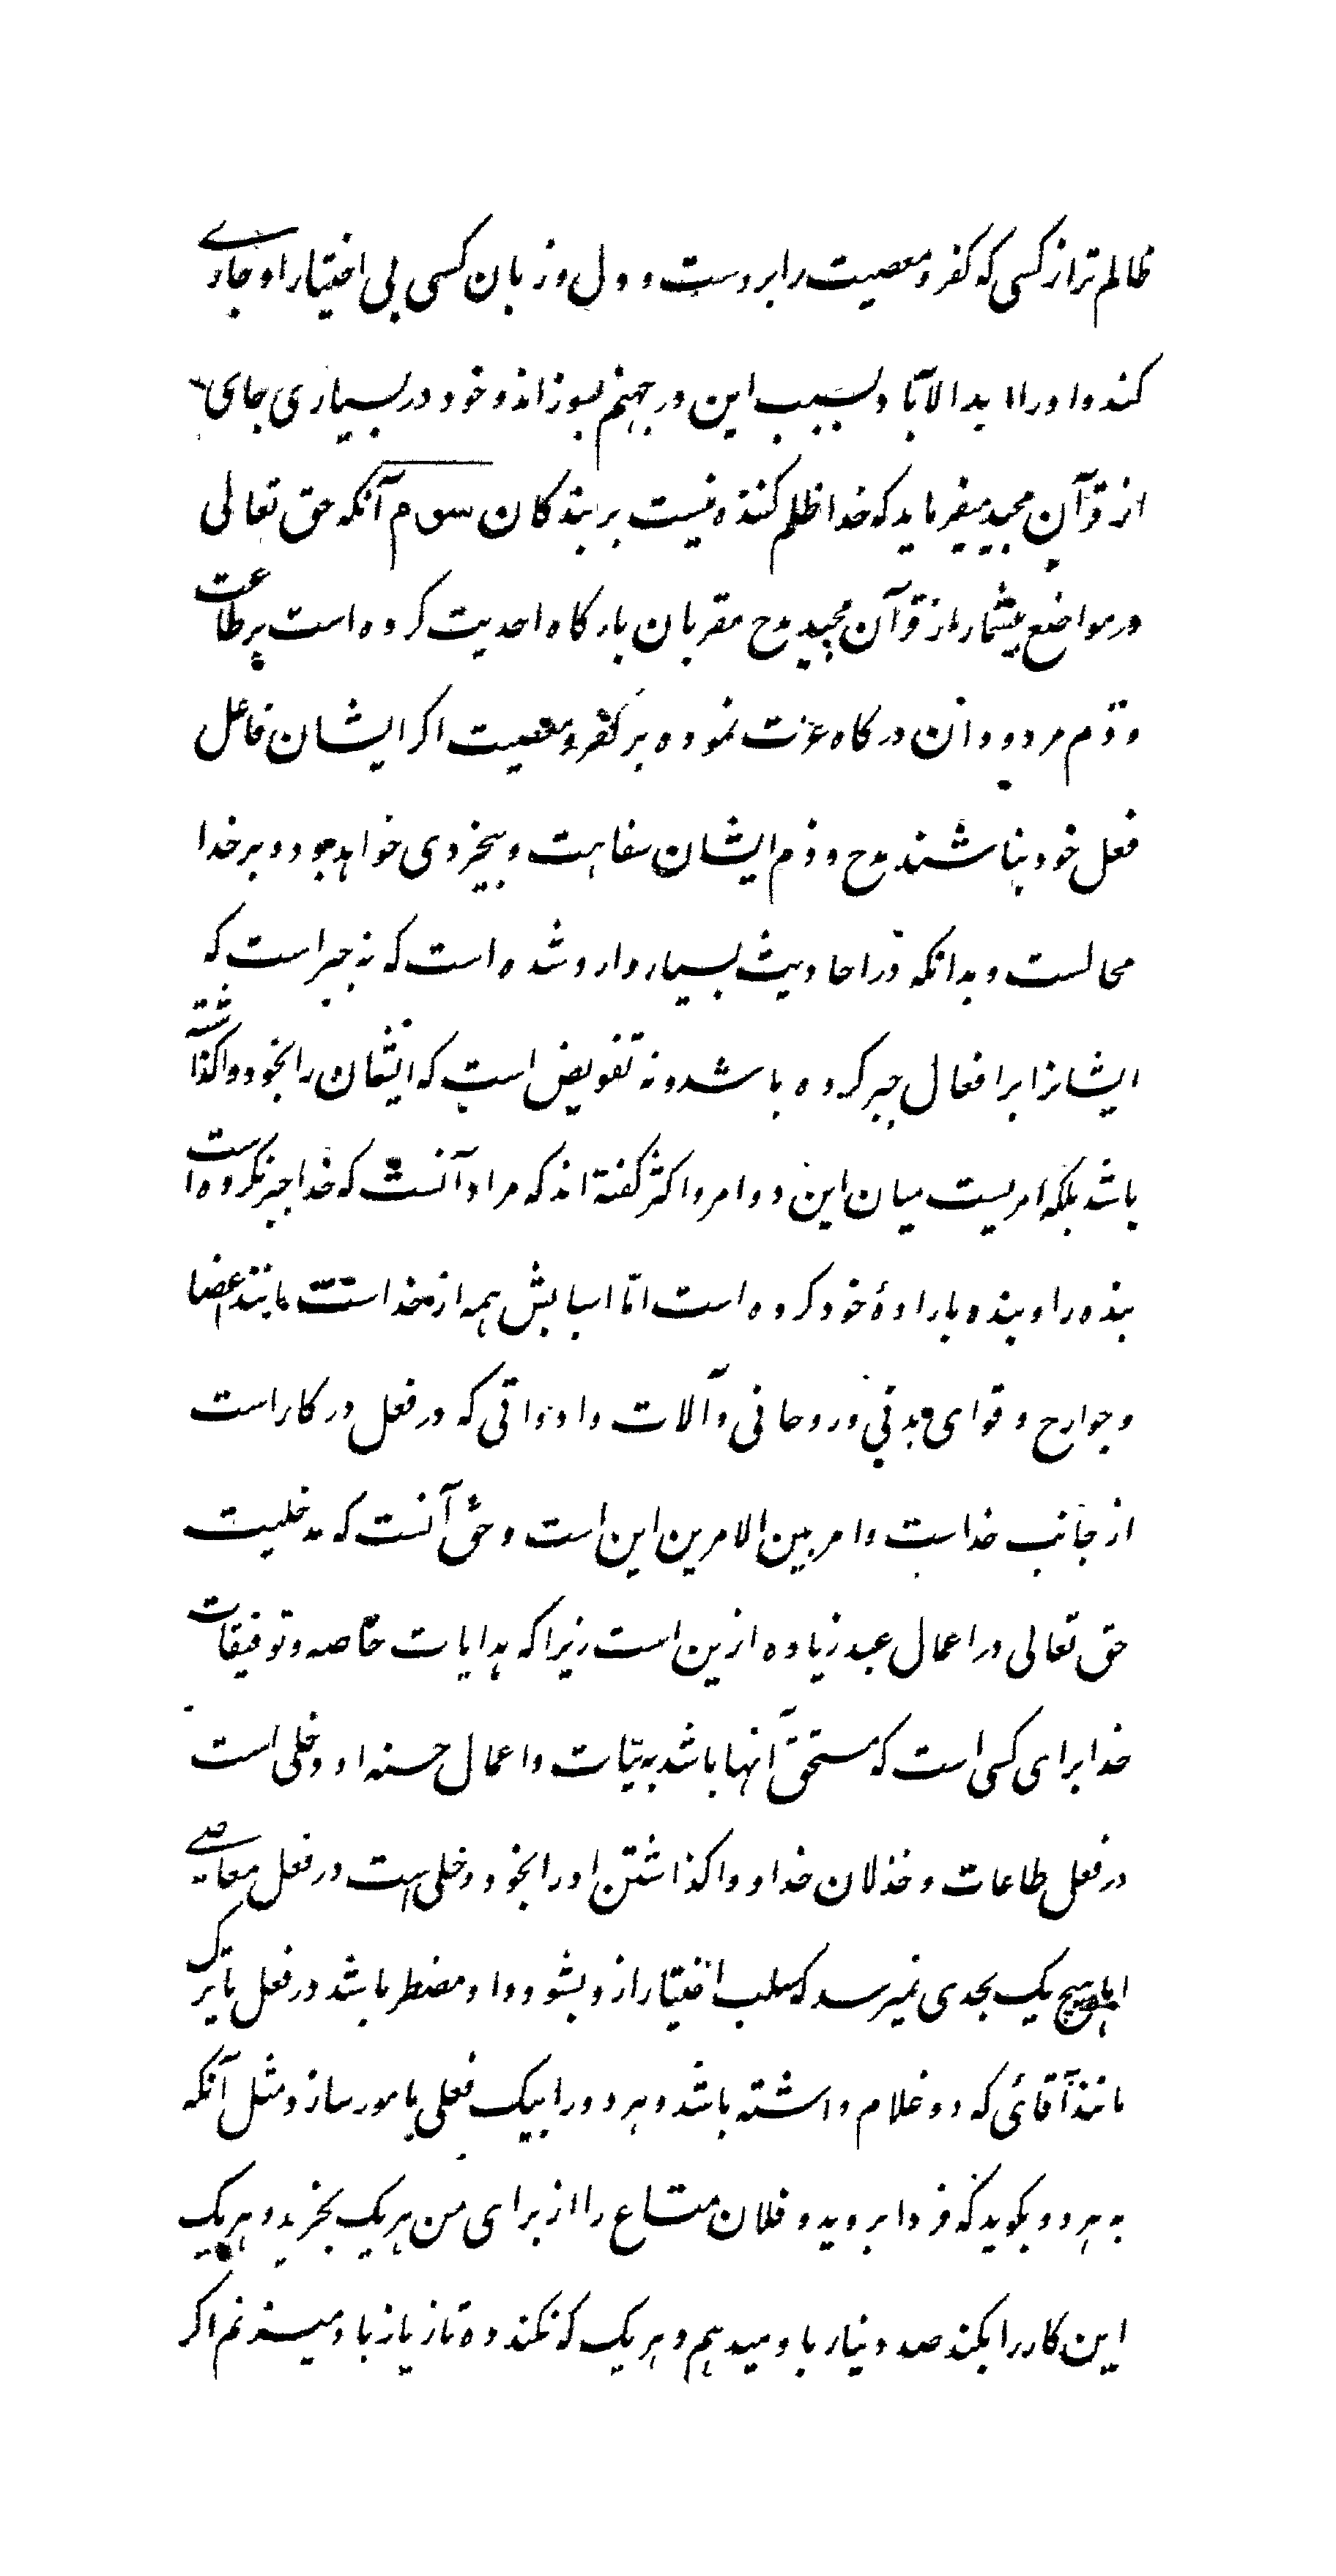 ظالم تر از کسی که کفر و معصیت را بر دست و دل و زبان کسی بی اختیار او جاری
کند و او را ابد الاباد بسبب این در جهنم بسوزاند و خود در بسیاری جای
از قرآن مجید میفرماید که خدا ظلم کننده نیست بر بندکان سوم آنکه حق تعالی
در مواضع بیشمار از قرآن مجید مدح مقربان بارکاه احدیت کرده است بر طاعت
و ذم مردودان درکاه عزت نموده بر کفر و معصیت اکر ایشان فاعل
فعل خود نباشند مدح و ذم ایشان سفاهت و بیخردی خواهد بود و بر خدا
محالست و بدانکه در احادیث بسیار وارد شده است که نه جبر است که
ایشانرا بر افعال جبر کرده باشد و نه تفویض است که ایشان را بخود واکذاشته
باشد بلکه امریست میان این دو امر و اکثر کفته اند که مراد آنست که خدا جبر نکرده است
بنده را و بنده باراده خود کرده است امّا اسبابش همه از خداست مانند اعضا
و جوارح و قوای بدنی و روحانی و آلات و ادواتی که در فعل در کار است
از جانب خداست و امر بین الامرین این است و حق آنست که مدخلیت
حق تعالی در اعمال عبد زیاده ازین است زیرا که هدایات خاصه و توفیقات
خدا برای کسی است که مستحق آنها باشد به نیّات و اعمال حسنه او دخلی است
در فعل طاعات و خذلان خدا و واکذاشتن او را بخود دخلی است در فعل معاصی
اما هیچ یک بحدی نمیرسد که سلب اختیار از و بشود و او مضطر باشد در فعل یا ترک
مانند آقائی که دو غلام داشته باشد و هر دو را بیک فعلی مامور سازد مثل آنکه
به هر دو بکوید که فردا بروید و فلان متاع را از برای من هریک بخرید و هریک
این کار را بکند صد دینار باو میدهم و هریک که نکند ده تازیانه باو میزنم اکر